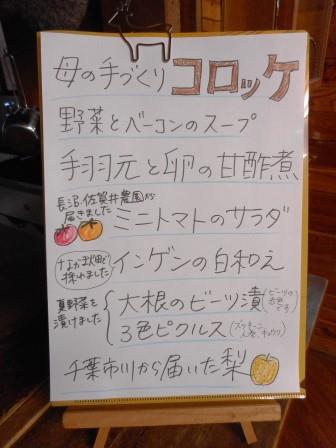 母の手づくりコロッケ
野菜とベーコンのスープ
手羽元と卵の甘酢煮
長沼・佐賀井農園から
届きました
ミニトマトのサラダ
なかまた町で
採れました
インゲンの白和え
夏野菜を
漬けました
大根のビーツ漬
(ビーツの
お色
です)
3色ピクルス
(ズッキーニ
人参、キュウリ)
千葉市川から届いた梨